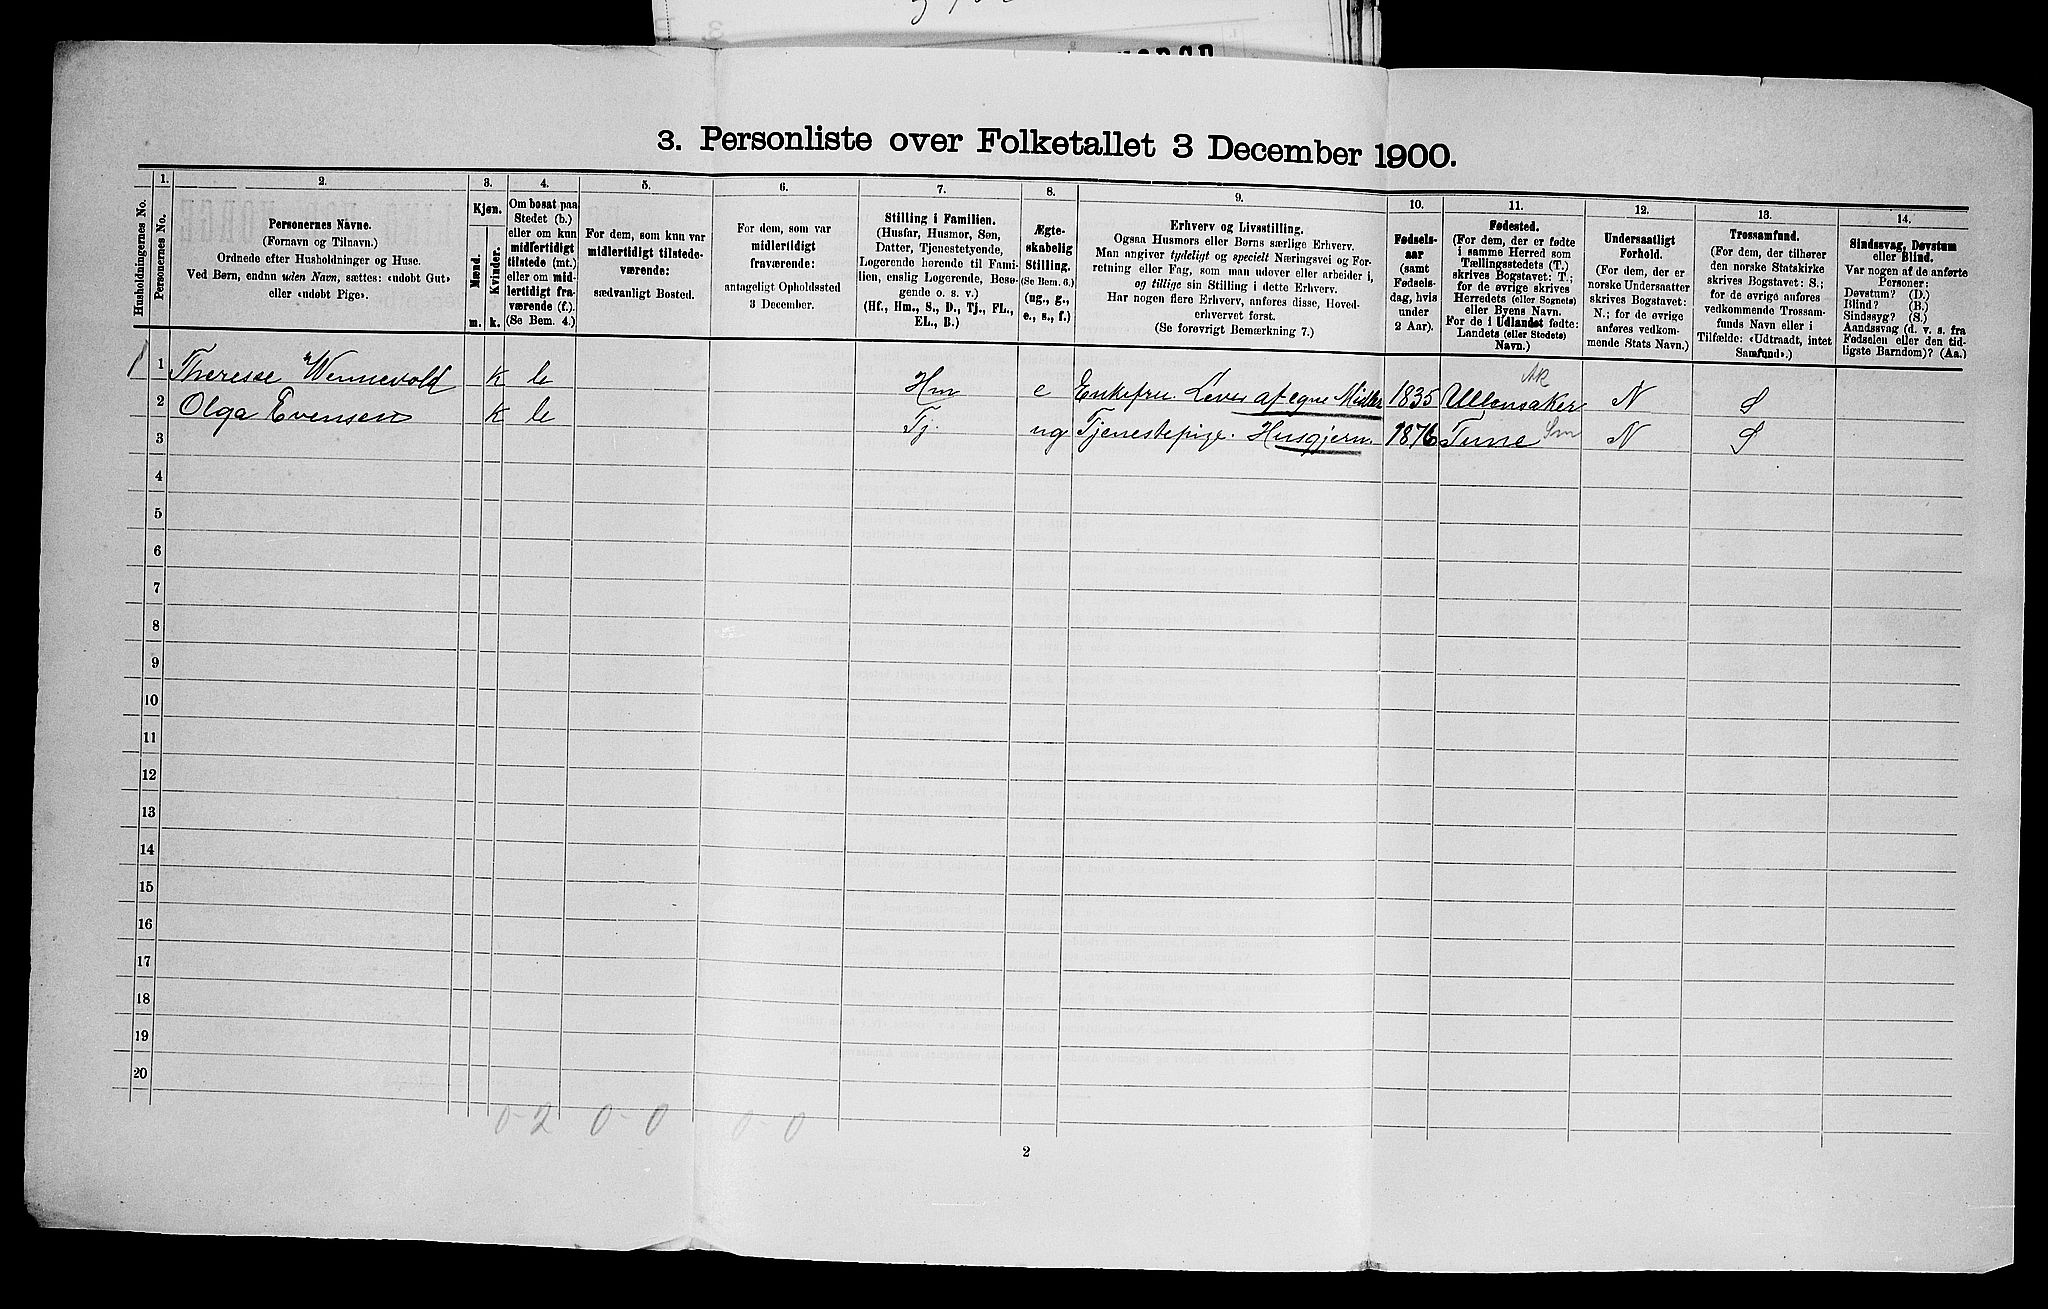 3. Personliste over Folketallet 3 December 1900.
Husholdningernes No.
1.
Personernes No.
2.
Personernes Navne.
(Fornavn og Tilnavn.)
Ordnede efter Husholdninger og Huse.
Ved Børn, endnu uden Navn, sættes: «udøbt Gut»
eller «udøbt Pige».
3.
Kjøn.
Mænd.
Kvinder.
m.
k.
4.
Om bosat paa
Stedet (b.)
eller om kun
midlertidigt
tilstede (mt.)
eller om mid-
lertidigt fra-
værende (f.)
(Se Bem. 4.)
5.
For dem, som kun var
midlertidigt tilstede-
værende:
sædvanligt Bosted.
6.
For dem, som var
midlertidigt
fraværende:
antageligt Opholdssted
3 December.
7.
Stilling i Familien.
(Husfar, Husmor, Søn,
Datter, Tjenestetyende,
Logerende hørende til Fami-
lien, enslig Logerende, Besø-
gende o. s. v.)
(Hf., Hm., S., D., Tj., FL.,
EL., B.)
8.
Ægte-
skabelig
Stilling.
(Se Bem. 6.)
(ug., g.,
e., s., f.)
9.
Erhverv og Livsstilling.
Ogsaa Husmors eller Børns særlige Erhverv.
Man angiver tydeligt og specielt Næringsvei og For-
retning eller Fag, som man udøver eller arbeider i,
og tillige sin Stilling i dette Erhverv.
Har nogen flere Erhverv, anføres disse, Hoved-
erhvervet først.
(Se forøvrigt Bemærkning 7.)
10.
Fødsels-
aar
(samt
Fødsels-
dag, hvis
under
2 Aar).
11.
Fødested.
(For dem, der er fødte
i samme Herred som
Tællingsstedets (T.)
skrives Bogstavet: T.;
for de øvrige skrives
Herredets (eller Sognets)
eller Byens Navn.
For de i Udlandet fødte:
Landets (eller Stedets)
Navn.)
12.
Undersaatligt
Forhold.
(For dem, der er
norske Undersaatter
skrives Bogstavet:
N.; for de øvrige
anføres vedkom-
mende Stats Navn.)
13.
Trossamfund.
(For dem, der tilhører
den norske Statskirke
skrives Bogstavet: S.;
for de øvrige anføres
vedkommende Trossam-
funds Navn eller i
Tilfælde: «Udtraadt, intet
Samfund».)
14.
Sindssvag, Døvstum
eller Blind.
Var nogen af de anførte
Personer:
Døvstum? (D.)
Blind? (B.)
Sindssyg? (S.)
Aandssvag (d. v. s. fra
Fødselen eller den tid-
ligste Barndom)? (Aa.)
1 1 Theresse Wennevold k b Hm e Enkefru. Lever af egne Midler 1835 Ullensaker Ak N S
2 Olga Evensen k b Tj. ug Tjenestepige. Husgjern. 1876 Tune Sm N S
3
4
5
6
7
8
9
10
11
12
13
14
15
16
17
18
19
20
0-2 0-0 0-0
2